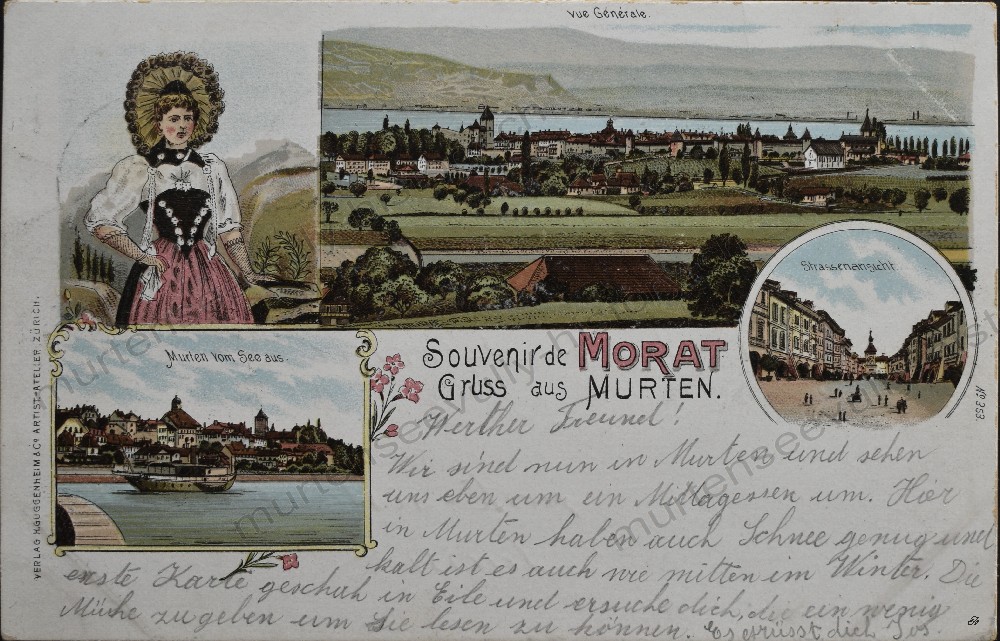 Vue Générale.
Strassenansicht
Murten vom See aus.
Souvenir de MORAT
Gruss aus MURTEN.
VERLAG H. GUGGENHEIM & Co. ARTIST=ATELIER ZÜRICH.
No 353.
Werther Freund!
Wir sind nun in Murten und sehen
uns eben um ein Mittagessen um. Hier
in Murten haben auch Schnee genug und
kalt ist es auch wie mitten im Winter. Die
erste Karte geschah in Eile und ersuche dich, die ein wenig
Mühe zu geben um Sie lesen zu können. Es grüsst dich